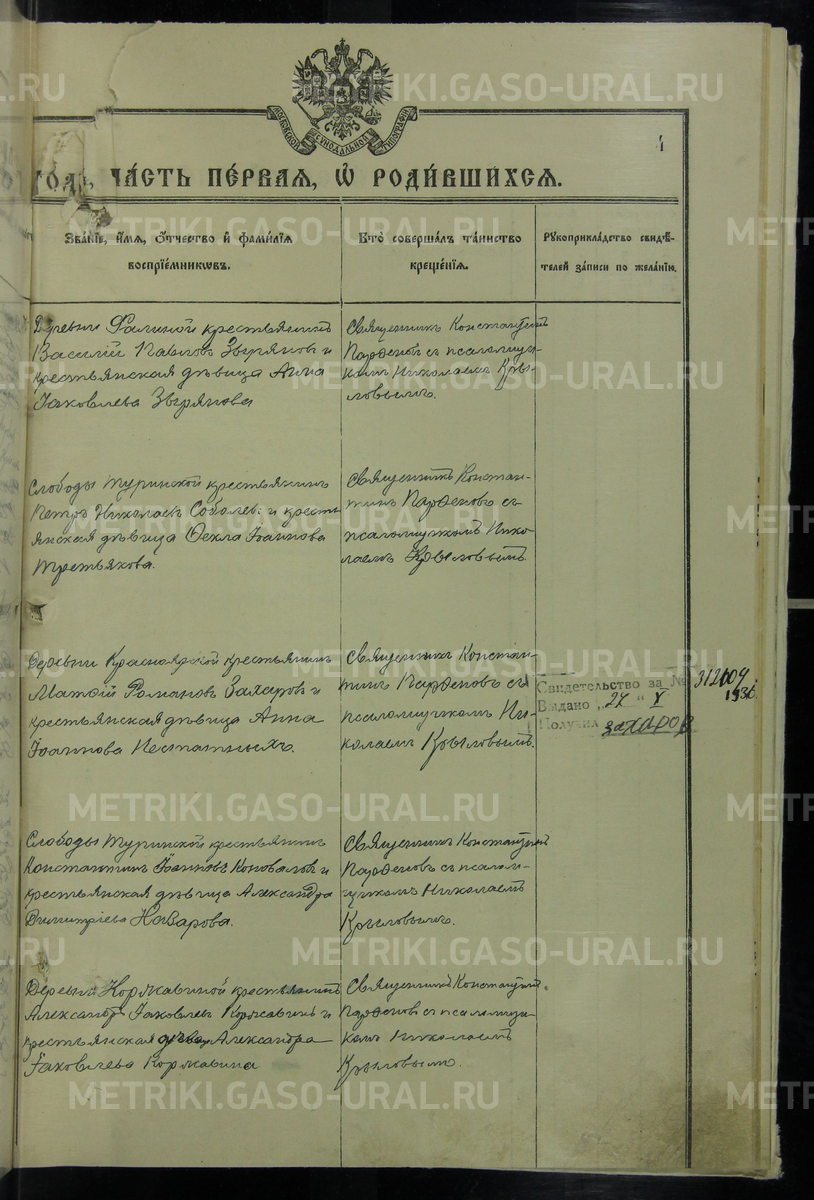 МОСКОВСКОЙ СѴНОДАЛЬНОЙ ТИПОГРАФІИ
4
годъ, ча́сть пе́рвая, ѡ҆ роди́вшихся.
Зва́нїе, и҆́мя, ѻ҆́тчество и҆ фами́лїя
воспрїе́мникѡвъ.
Кто̀ соверша́лъ та́инство
креще́нїя.
Рꙋкоприкла́дство свидѣ́-
телей за́писи по жела́нїю.
Деревни Фалиной крестьянинъ
Василій Павловъ Звѣряковъ и
крестьянская дѣвица Анна
Іаковлева Звѣрянова
Священникъ Константинъ
Парѳеновъ съ псаломщи-
комъ Николаемъ Кры-
ловымъ.
Слободы Туринской крестьянинъ
Петръ Николаевъ Соболевъ и кресть-
янская дѣвица Ѳекла Іоаннова
Третьякова.
Священникъ Констан-
тинъ Парѳеновъ съ
псаломщикомъ Нико-
лаемъ Крыловымъ.
Деревни Красноярской крестьянинъ
Матѳій Романовъ Захаровъ и
крестьянская дѣвица Анна
Іоаннова Пестатныхъ.
Священникъ Констан-
тинъ Парѳеновъ съ
псаломщикомъ Ни-
колаемъ Крыловымъ.
Свидетельство за №
Выдано „27 “ X 193
Получил Захаров
Слободы Туринской крестьянинъ
Константинъ Іоанновъ Коноваловъ и
крестьянская дѣвица Александра
Димитріева Назарова.
Священникъ Константинъ
Парѳеновъ съ псалом-
щикомъ Николаемъ
Крыловымъ.
Деревни Коржавиной крестьянинъ
Александръ Іаковлевъ Коржавинъ и
крестьянская дѣвица Александра
Іаковлева Коржавина
Священникъ Константинъ
Парѳеновъ съ псаломщи-
комъ Николаемъ
Крыловымъ.
METRIKI.GASO-URAL.RU